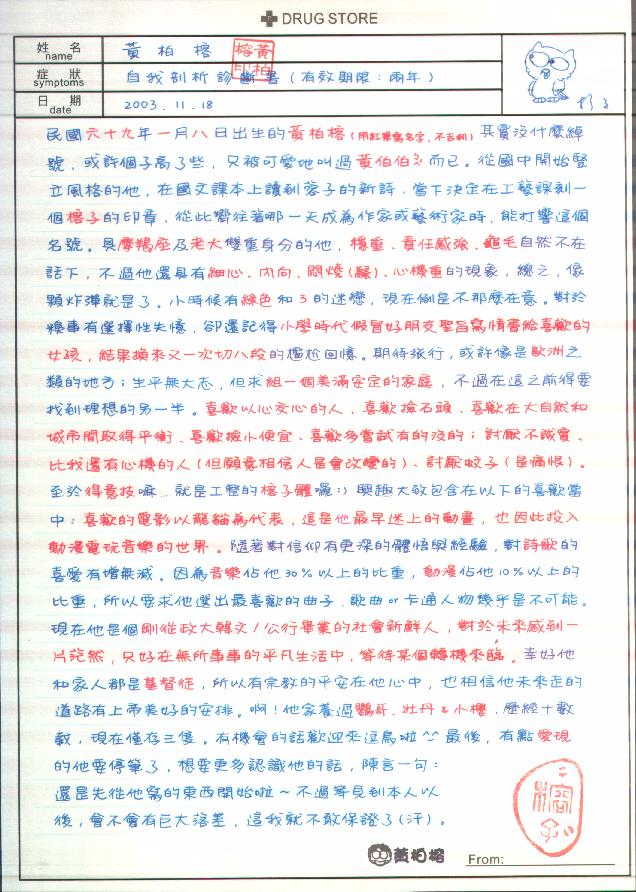 DRUG STORE
姓 名 name 黃 柏 榕
症 狀 symptoms 自我剖析診斷書(有效期限:兩年)
日 期 date 2003.11.18
民國六十九年一月八日出生的黃柏榕(用紅筆寫名字,不吉利)其實沒什麼綽
號,或許個子高了些,只被可愛地叫過黃伯伯而已。從國中開始豎
立風格的他,在國文課本上讀到蓉子的新詩,當下決定在工藝課刻一
個榕子的印章,從此嚮往著哪一天成為作家或藝術家時,能打響這個
名號。具摩羯座及老大雙重身分的他,穩重、責任感強、龜毛自然不在
話下,不過他還具有細心、內向、悶燒(騷)、心機重的現象,總之,像
顆炸彈就是了。小時候有綠色和3的迷戀,現在倒是不那麼在意。對於
糗事有選擇性失憶,卻還記得小學時代假冒好朋友聖旨寫情書給喜歡的
女孩,結果換來又一次切八段的尷尬回憶。期待旅行,或許像是歐洲之
類的地方;生平無大志,但求組一個美滿安定的家庭,不過在這之前得要
找到理想的另一半。喜歡以心交心的人、喜歡撿石頭、喜歡在大自然和
城市間取得平衡、喜歡撿小便宜、喜歡多嘗試有的沒的;討厭不誠實、
比我還有心機的人(但願意相信人是會改變的)、討厭蚊子(是痛恨)。
至於得意技嘛...就是工整的榕子體囉:)興趣大致包含在以下的喜歡當
中:喜歡的電影以龍貓為代表,這是他最早迷上的動畫,也因此投入
動漫電玩音樂的世界。隨著對信仰有更深的體悟與經驗,對詩歌的
喜愛有增無減。因為音樂佔他30%以上的比重,動漫佔他10%以上的
比重,所以要求他選出最喜歡的曲子、歌曲or卡通人物幾乎是不可能。
現在他是個剛從政大轉文/公行畢業的社會新鮮人,對於未來感到一
片茫然,只好在無所事事的平凡生活中,等待某個轉機來臨。幸好他
和家人都是基督徒,所以有宗教的平安在他心中,也相信他未來走的
道路有上帝美好的安排。啊!他家養過鸚哥、牡丹&小櫻,歷經十數
載,現在僅存三隻。有機會的話歡迎來逗鳥啦^^最後,有點愛現
的他要停筆了,想要更多認識他的話,陳言一句:
還是先從他寫的東西開始啦~不過等見到本人以
後,會不會有巨大落差,這我就不敢保證了(汗)。
黃柏榕 From: